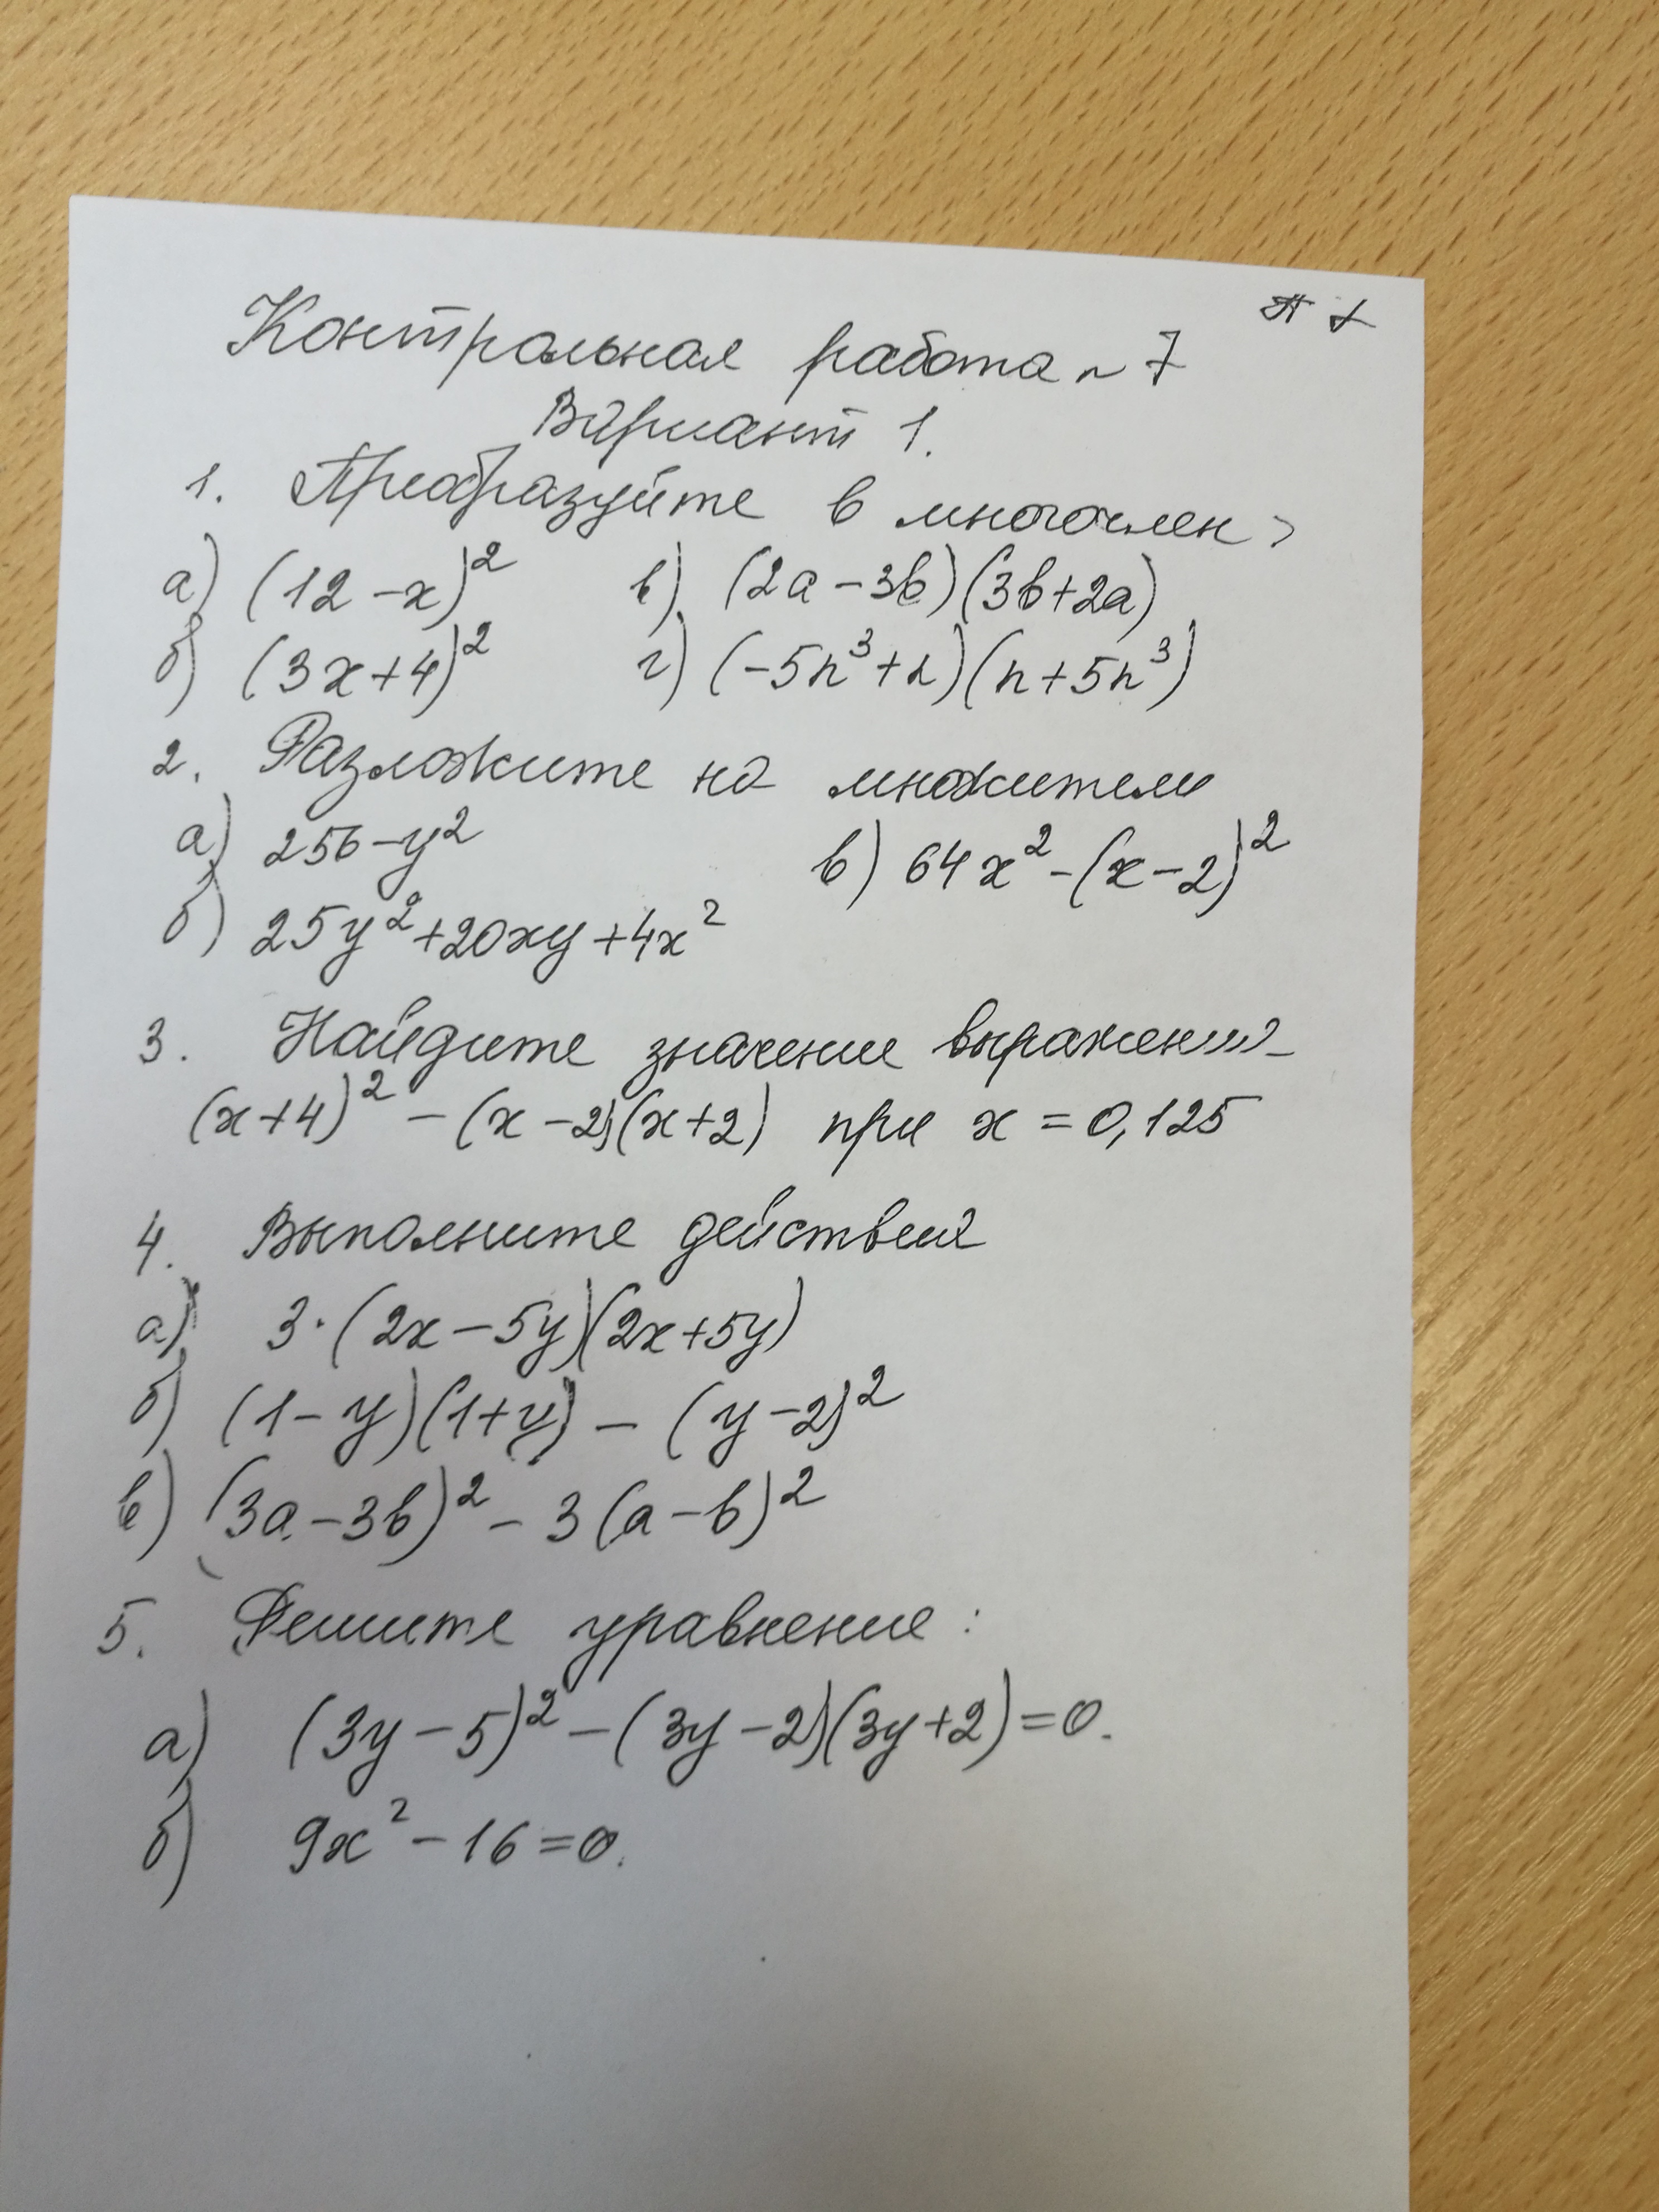 Контрольная работа № 7
Вариант 1.
1. Преобразуйте в многочлен
а) (12 - x)² в) (2a - 3b)(3b + 2a)
б) (3x + 4)² г) (-5n³ + n)(n + 5n³)
2. Разложите на множители
а) 256 - y² в) 64x² - (x - 2)²
б) 25y² + 20xy + 4x²
3. Найдите значение выражения
(x + 4)² - (x - 2)(x + 2) при x = 0,125
4. Выполните действия
а) 3·(2x - 5y)(2x + 5y)
б) (1 - y)(1 + y) - (y - 2)²
в) (3a - 3b)² - 3(a - b)²
5. Решите уравнение:
а) (3y - 5)² - (3y - 2)(3y + 2) = 0.
б) 9x² - 16 = 0.